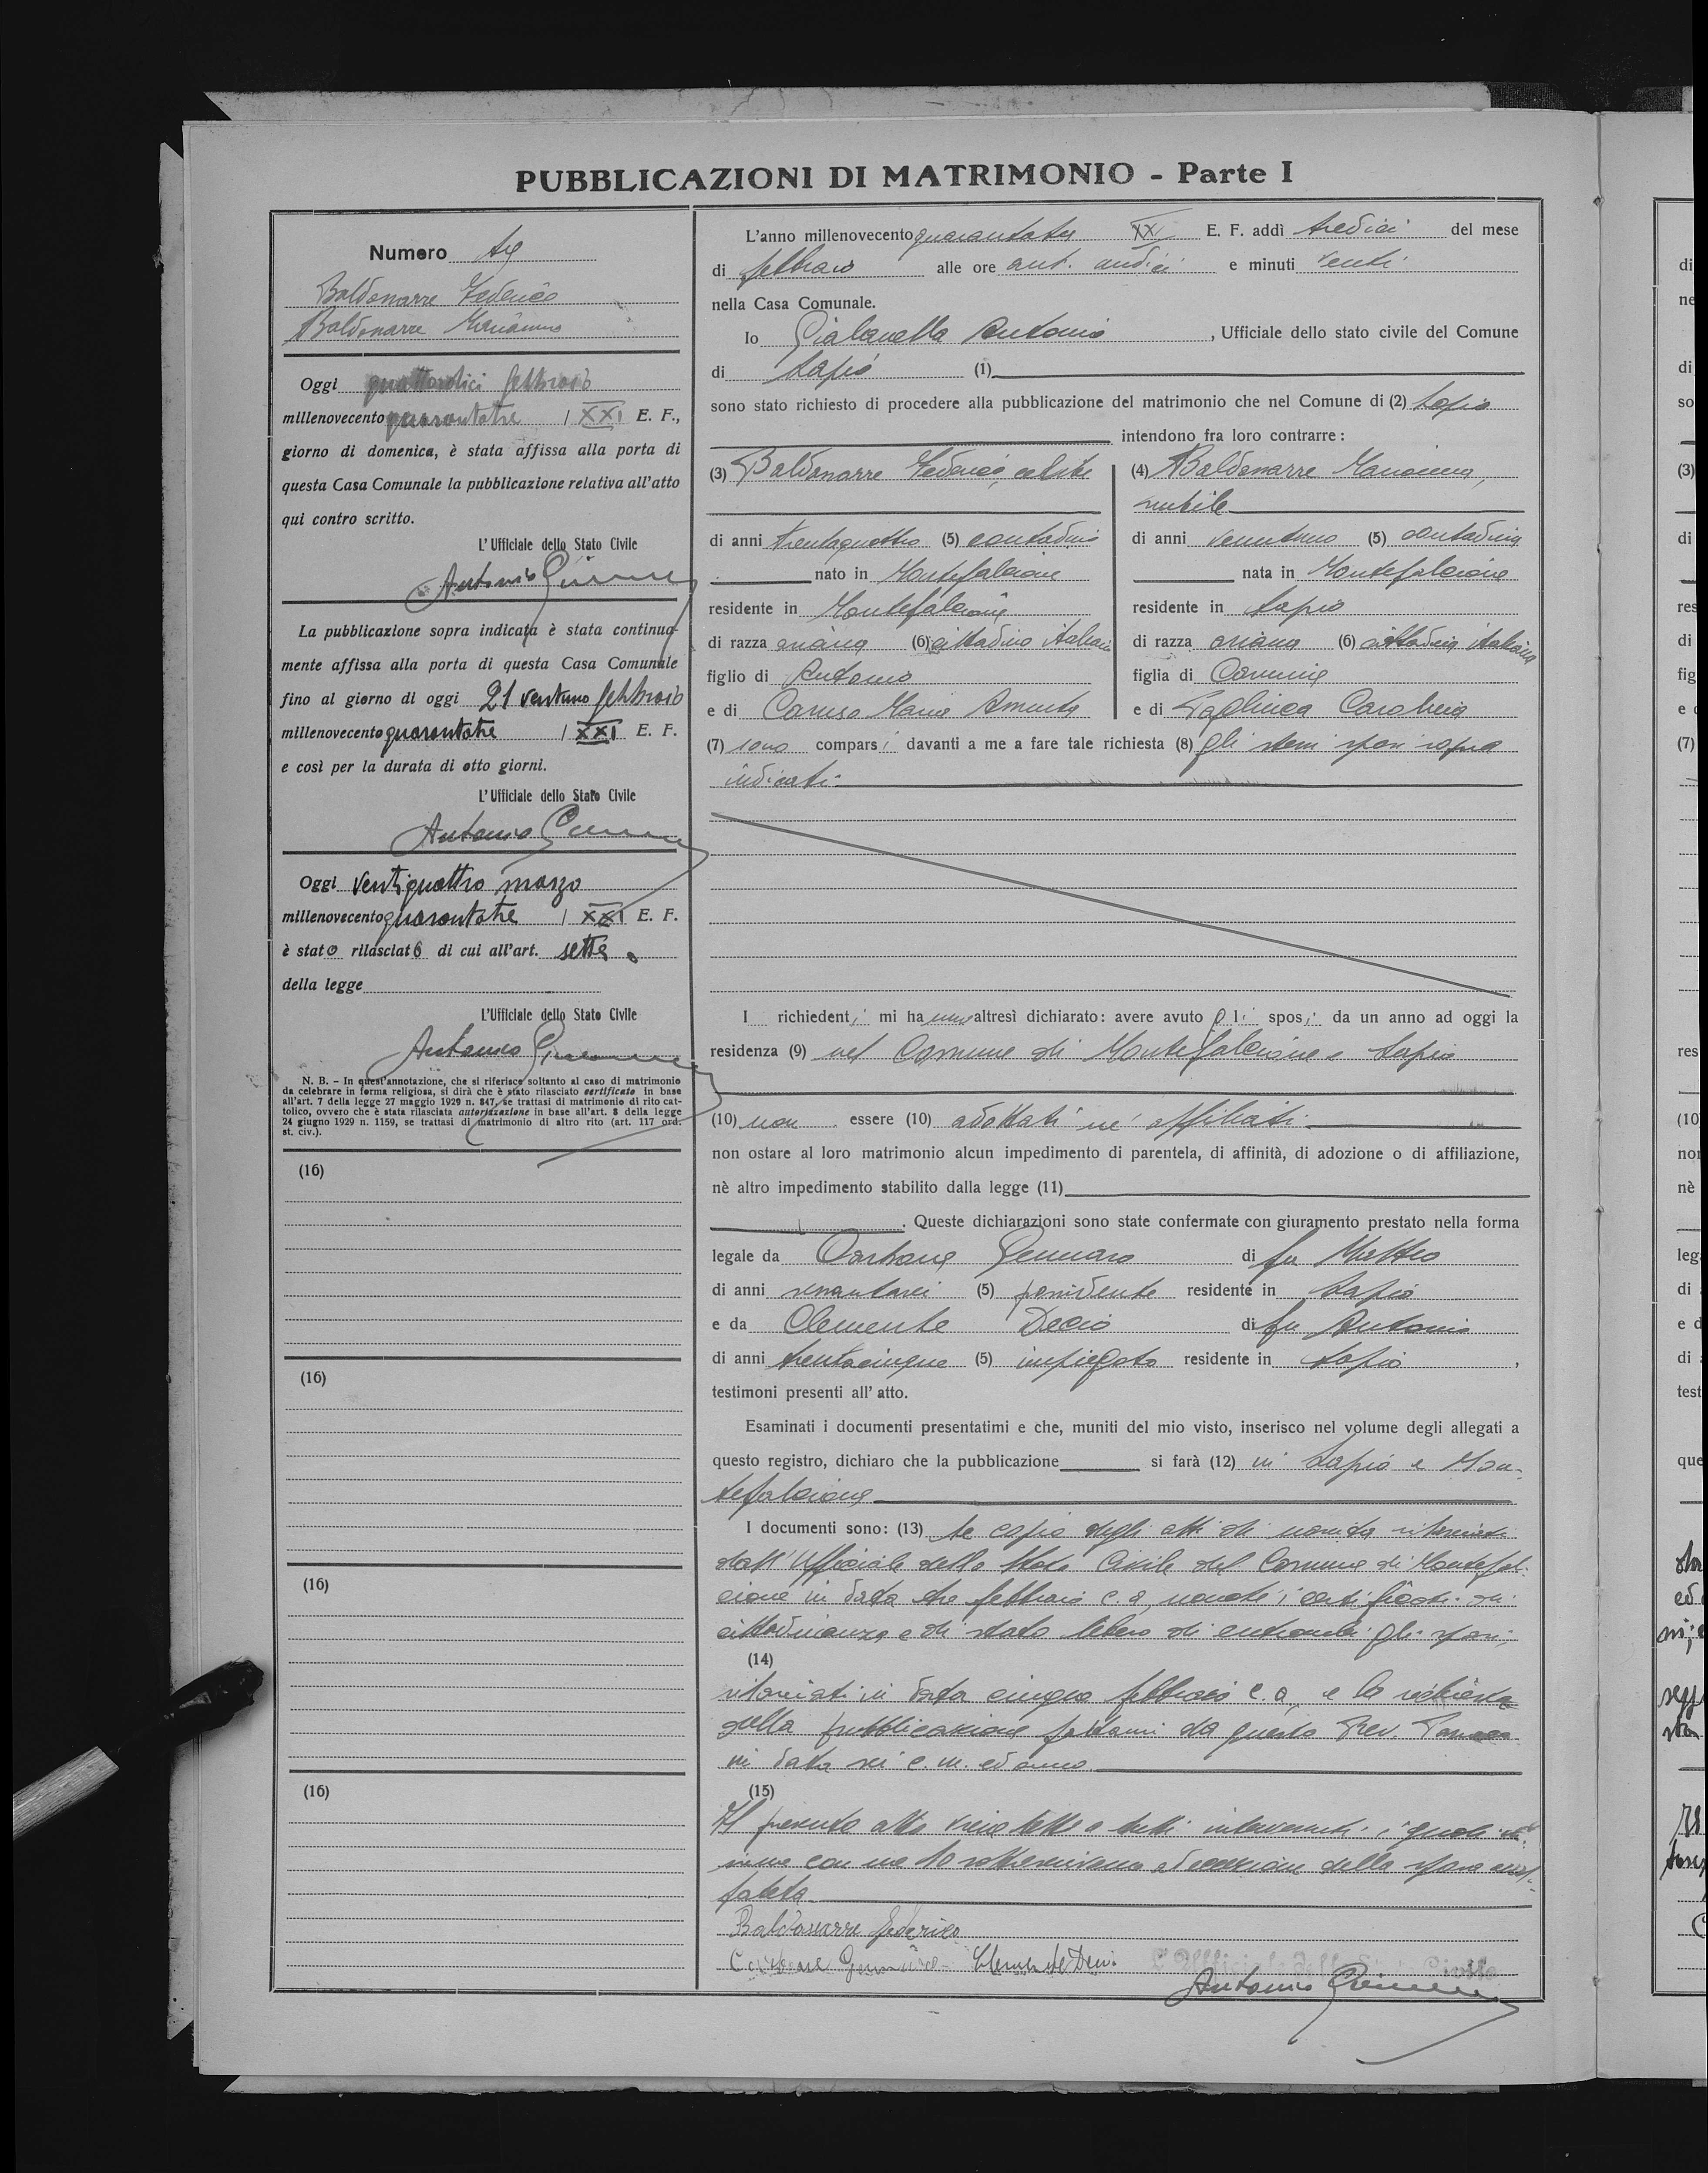 PUBBLICAZIONI DI MATRIMONIO - Parte I
Numero tre
Baldassarre Federico
Baldassarre Marianna
Oggi quattordici febbraio
millenovecento quarantatre / XXI E. F.,
giorno di domenica, è stata affissa alla porta di
questa Casa Comunale la pubblicazione relativa all'atto
qui contro scritto.
L'Ufficiale dello Stato Civile
Antonio
La pubblicazione sopra indicata è stata continua-
mente affissa alla porta di questa Casa Comunale
fino al giorno di oggi 21 ventuno febbraio
millenovecento quarantatre / XXI E. F.
e così per la durata di otto giorni.
L'Ufficiale dello Stato Civile
Antonio
Oggi ventiquattro marzo
millenovecento quarantatre / XXI E. F.
è stato rilasciato di cui all'art. sette
della legge
L'Ufficiale dello Stato Civile
Antonio
N. B. - In quest'annotazione, che si riferisce soltanto al caso di matrimonio
da celebrare in forma religiosa, si dirà che è stato rilasciato certificato in base
all'art. 7 della legge 27 maggio 1929 n. 847, se trattasi di matrimonio di rito cat-
tolico, ovvero che è stata rilasciata autorizzazione in base all'art. 8 della legge
24 giugno 1929 n. 1159, se trattasi di matrimonio di altro rito (art. 117 ord.
st. civ.).
(16)
(16)
(16)
(16)
L'anno millenovecento quarantatre XXI E. F. addì tredici del mese
di febbraio alle ore ant. undici e minuti venti
nella Casa Comunale.
Io Gialanella Antonio, Ufficiale dello stato civile del Comune
di Lapio (1)
sono stato richiesto di procedere alla pubblicazione del matrimonio che nel Comune di (2) Lapio
intendono fra loro contrarre:
(3) Baldassarre Federico, celibe
di anni trentaquattro (5) contadino
nato in Montefalcione
residente in Montefalcione
di razza ariana (6) cittadino italiano
figlio di Antonio
e di Caruso Maria Amenta
(4) Baldassarre Marianna,
nubile
di anni ventuno (5) contadina
nata in Montefalcione
residente in Lapio
di razza ariana (6) cittadina italiana
figlia di Carmine
e di Carolina
(7) sono comparsi davanti a me a fare tale richiesta (8) gli stessi sposi sopra
indicati.
I richiedenti mi hanno altresì dichiarato: avere avuto gli sposi da un anno ad oggi la
residenza (9) nel Comune di Montefalcione e Lapio
(10) non essere (10) adottati nè affiliati
non ostare al loro matrimonio alcun impedimento di parentela, di affinità, di adozione o di affiliazione,
nè altro impedimento stabilito dalla legge (11)
. Queste dichiarazioni sono state confermate con giuramento prestato nella forma
legale da Carbone Gennaro di fu Matteo
di anni sessantasei (5) possidente residente in Lapio
e da Clemente Decio di fu Antonio
di anni trentacinque (5) impiegato residente in Lapio,
testimoni presenti all'atto.
Esaminati i documenti presentatimi e che, muniti del mio visto, inserisco nel volume degli allegati a
questo registro, dichiaro che la pubblicazione si farà (12) in Lapio e Mon-
tefalcione
I documenti sono: (13) le copie degli atti di nascita rilasciati
dall'Ufficiale dello Stato Civile del Comune di Montefal-
cione in data tre febbraio c. a, nonchè i certificati di
cittadinanza e di stato libero di entrambi gli sposi,
(14)
rilasciati in data cinque febbraio c. a, e la richiesta
della pubblicazione fattami da questo Rev. Parroco
in data sei c. m. ed anno.
(15)
Il presente atto viene letto a tutti intervenuti i quali in-
sieme con me lo sottoscrivono ad eccezione della sposa anal-
fabeta.
Baldassarre Federico
Carbone Gennaro - Clemente Decio L'Ufficiale dello Stato Civile
Antonio